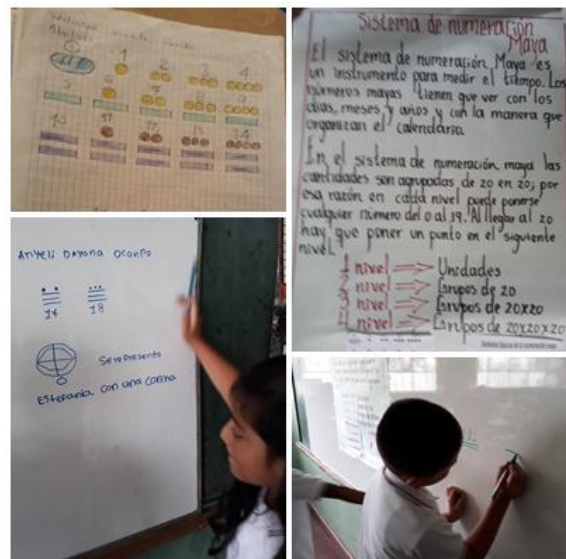 0 1 2 3 4
5 6 7 8 9
10 11 12 13 14
Sistema de numeración
Maya
El sistema de numeración Maya es
un instrumento para medir el tiempo. Los
números mayas tienen que ver con los
días, meses y años y con la manera que
organizan el calendario.
En el sistema de numeración maya las
cantidades son agrupadas de 20 en 20; por
esa razón en cada nivel puede ponerse
cualquier número del 0 al 19. Al llegar al 20
hay que poner un punto en el siguiente
nivel.
1 nivel ⇒ Unidades
2 nivel ⇒ Grupos de 20
3 nivel ⇒ Grupos de 20x20
4 nivel ⇒ Grupos de 20x20x20
Anyeli Dayana Ocampo
17 18
Se represento
Estefania con una concha